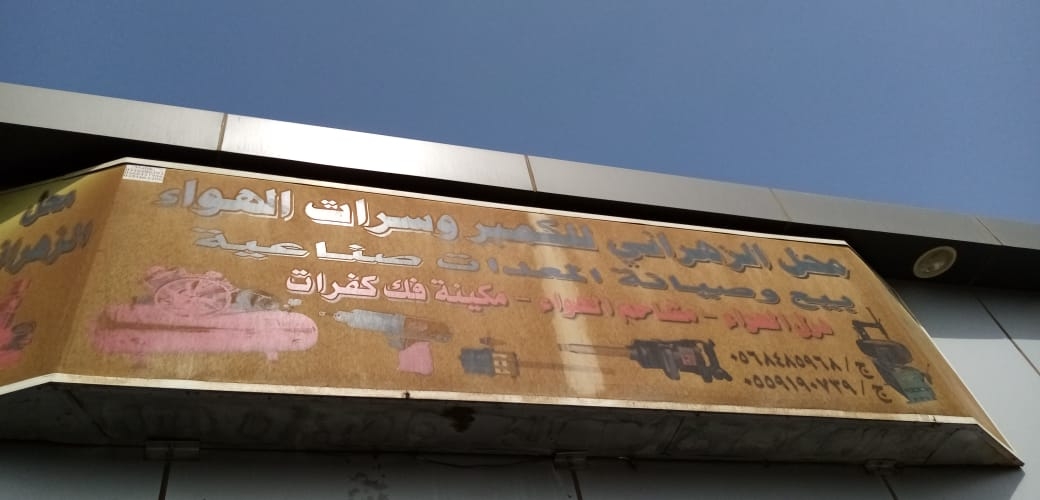 محل الزهراني للكمبر وسرات الهواء
بيع وصيانة المعدات صناعية
درل الهواء - مفاحم الهواء - مكينة فك كفرات
ج/ ٠٥٦٨٤٨٥٩٦٨
ج/ ٠٥٥٩١٩٠٧٣٩
محل
الزهراني